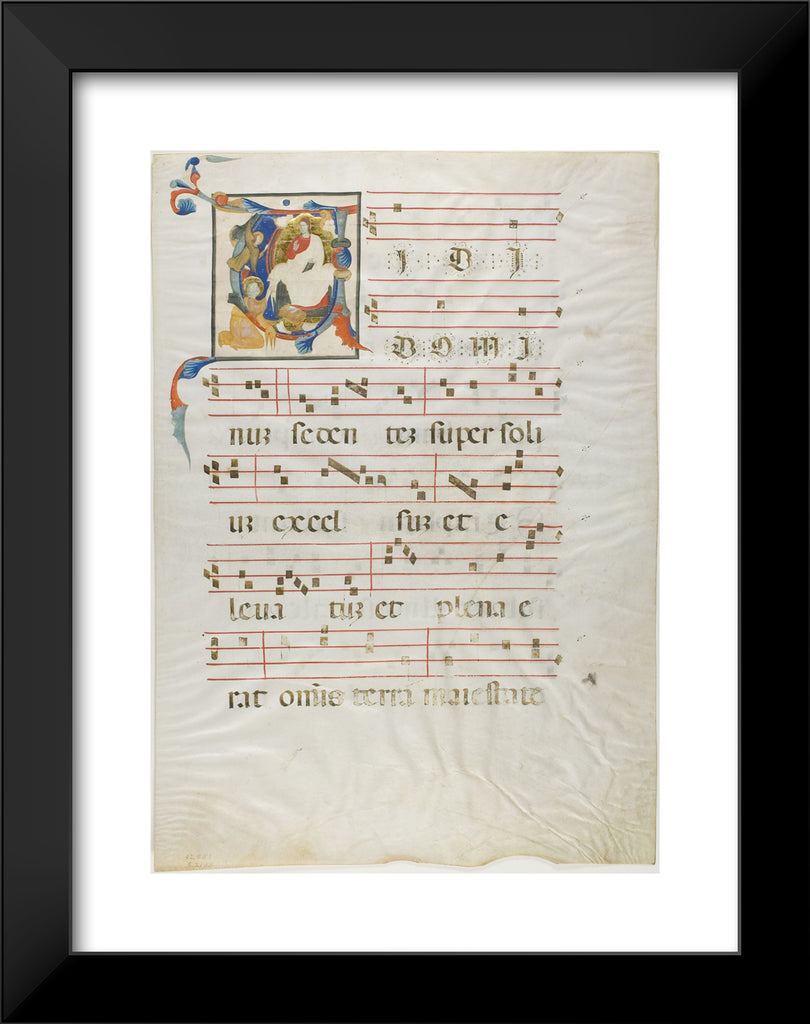 VIDI
DOMI
nuz seden tez super soli
uz excel suz et e
leva tuz et plena e
rat om̄is terra maiestate